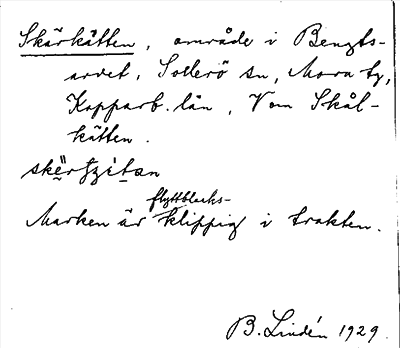 Skärkätten, område i Bengts-
arvet, Sollerö sn, Mora tg,
Kopparb. län, V om Skål-
kätten.
flyttblocks-
Marken är klippig i trakten.
B. Lindén 1929.